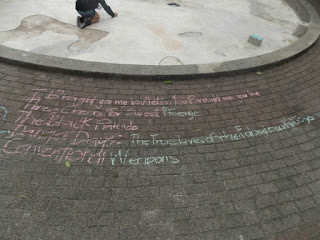 I Brought you me bullets you Brought me
Three Cheers for Sweet Revenge
The Black Parade
Danger Days: The True Lives of the Fabulous Killjoys
Conventional Weapons